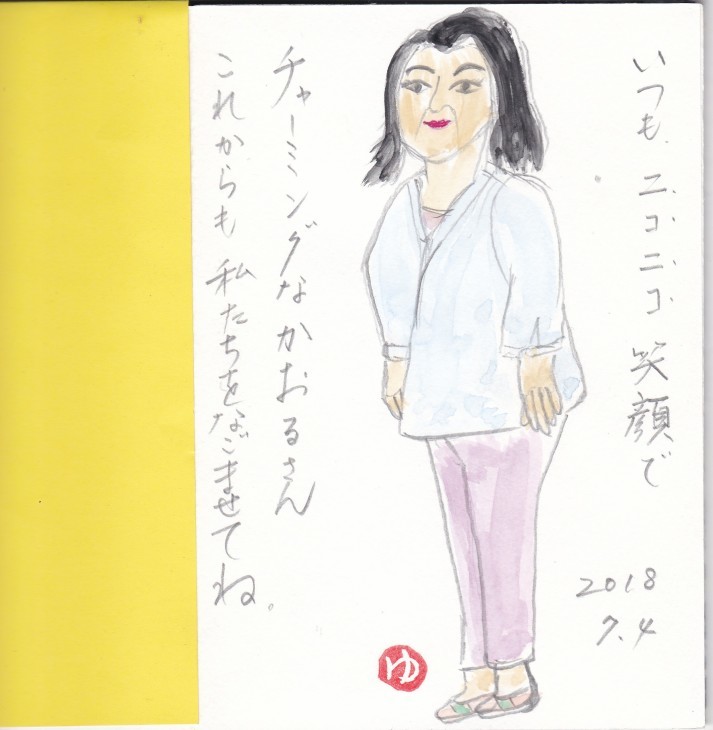 いつも ニコニコ 笑顔で
チャーミングなかおるさん
これからも 私たちをなごませてね。
2018
7.4
ゆ